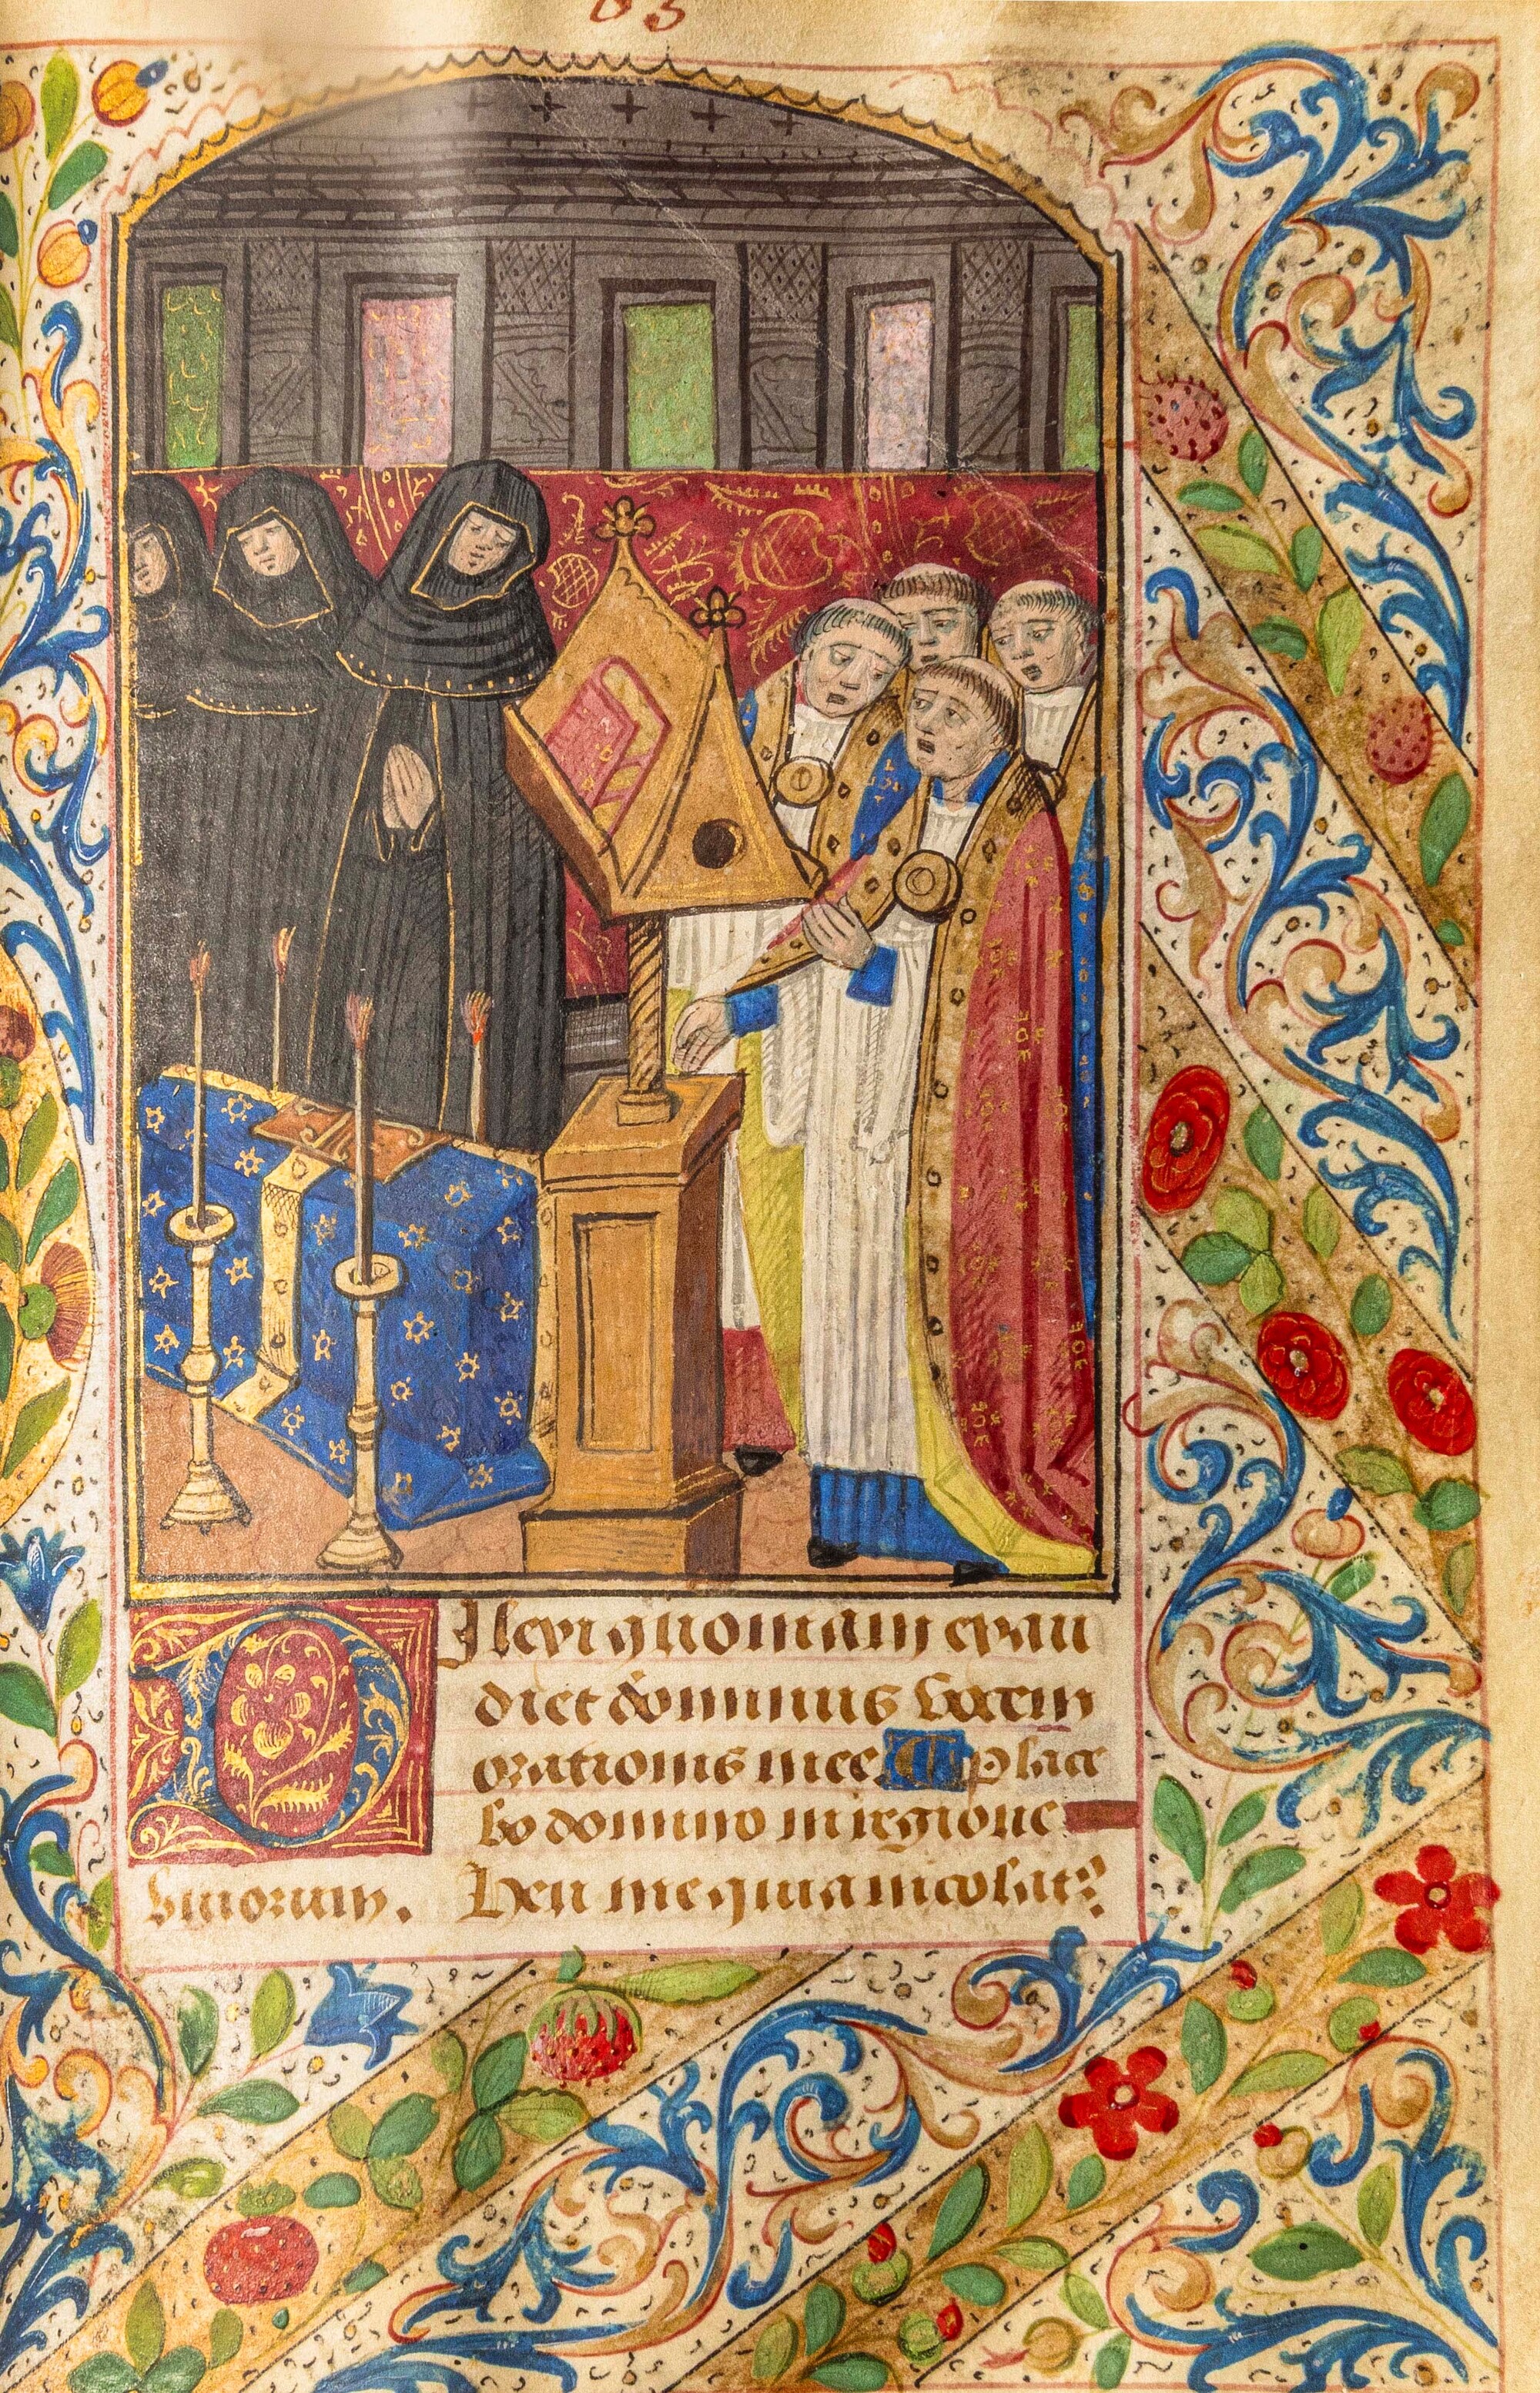 63
Dilexi quoniam exau
diet dominus vocem
orationis mee. Place
bo domino in regione
vivorum. Heu me quia incolatꝰ